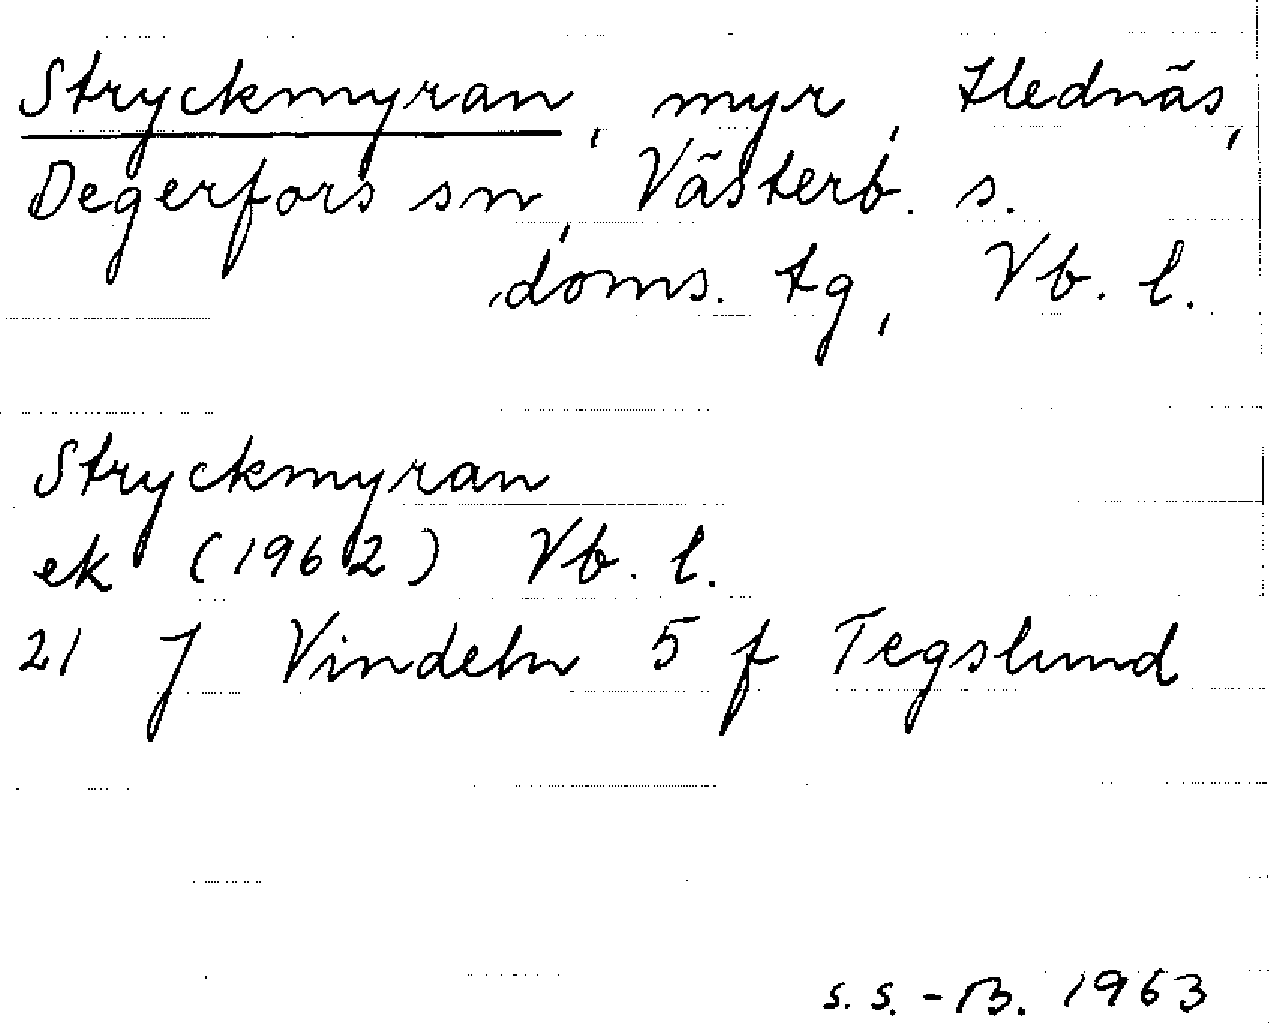 Stryckmyran, myr, Hednäs,
Degerfors sn, Västerb. s.
doms. tg, Vb. l.
Stryckmyran
ek (1962) Vb. l.
21 J Vindeln 5 f Tegslund
s. s. - B. 1963